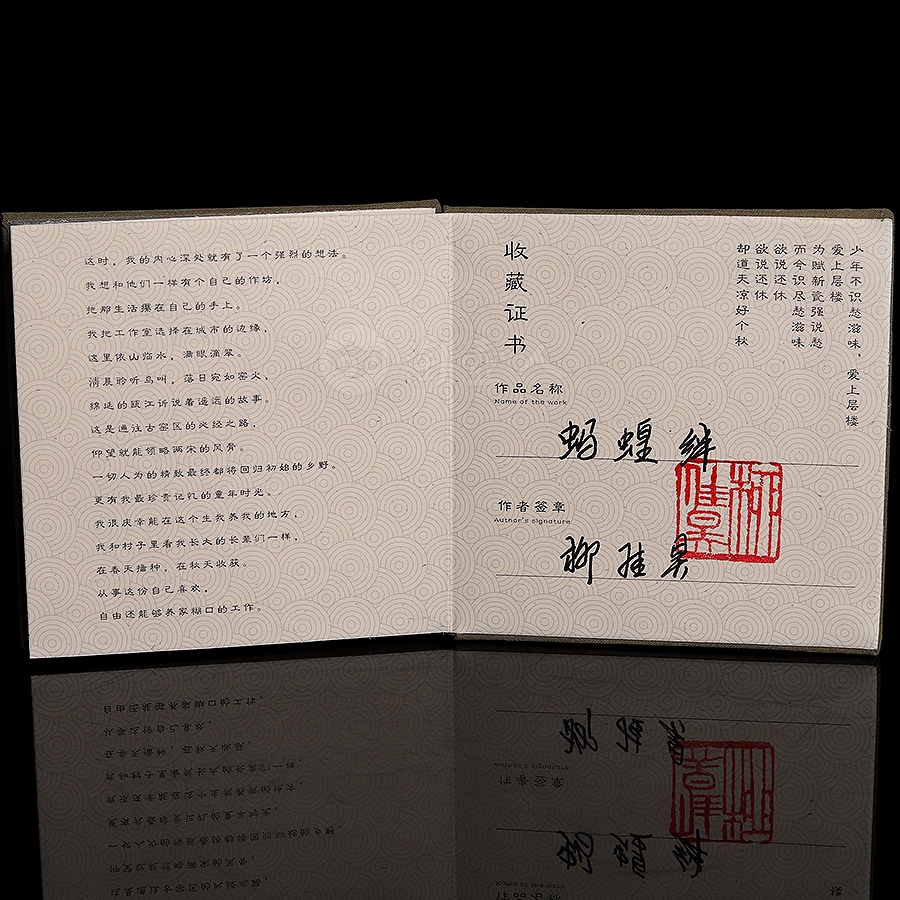 这时，我的内心深处就有了一个强烈的想法。
我想和他们一样有个自己的作坊，
把那生活摸在自己的手上。
我把工作室选择在城市的边缘，
这里依山临水，满眼滴翠。
清晨聆听鸟叫，落日宛如窑火，
绵延的瓯江诉说着遥远的故事。
这是通往古窑区的必经之路，
仰望就能领略两宋的风骨。
一切人为的精致最终都将回归初始的乡野。
更有我最珍贵记忆的童年时光。
我很庆幸能在这个生我养我的地方，
我和村子里看我长大的长辈们一样，
在春天播种，在秋天收获。
从事这份自己喜欢，
自由还能够养家糊口的工作。
少年不识愁滋味，爱上层楼
爱上层楼
为赋新瓷强说愁
而今识尽愁滋味
欲说还休
欲说还休
却道天凉好个秋
收藏证书
作品名称
Name of the work
蚂蝗绊
作者签章
Author's signature
柳佳昊